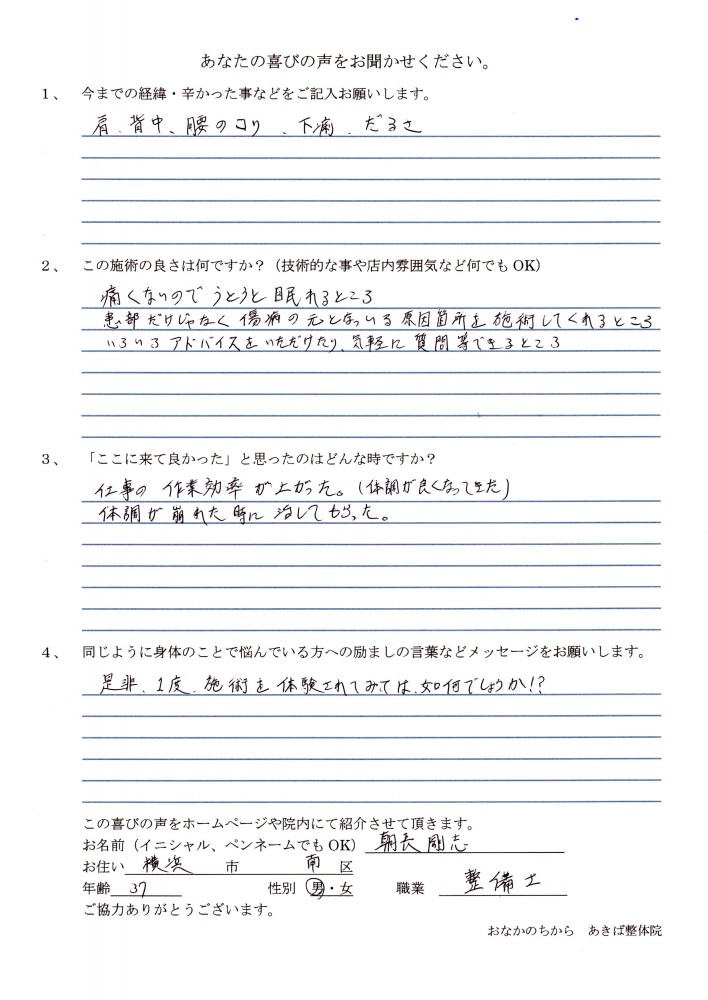 あなたの喜びの声をお聞かせください。
1、 今までの経緯・辛かった事などをご記入お願いします。
肩、背中、腰のコリ、下痢、だるさ
2、 この施術の良さは何ですか？（技術的な事や店内雰囲気など何でも OK）
痛くないので うとうと 眠れるところ
患部だけじゃなく 傷病の元となっいる 原因箇所を 施術してくれるところ
いろいろ アドバイスをいただけたり、気軽に 質問等できるところ
3、 「ここに来て良かった」と思ったのはどんな時ですか？
仕事の 作業効率が上がった。(体調が良くなってきた)
体調が 崩れた時に 治してもらった。
4、 同じように身体のことで悩んでいる方への励ましの言葉などメッセージをお願いします。
是非、1度、施術を 体験されてみては、如何でしょうか!?
この喜びの声をホームページや院内にて紹介させて頂きます。
お名前（イニシャル、ペンネームでも OK） 朝長 剛志
お住い 横浜 市 南 区
年齢 37 性別 男・女 職業 整備士
ご協力ありがとうございます。
おなかのちから あきば整体院